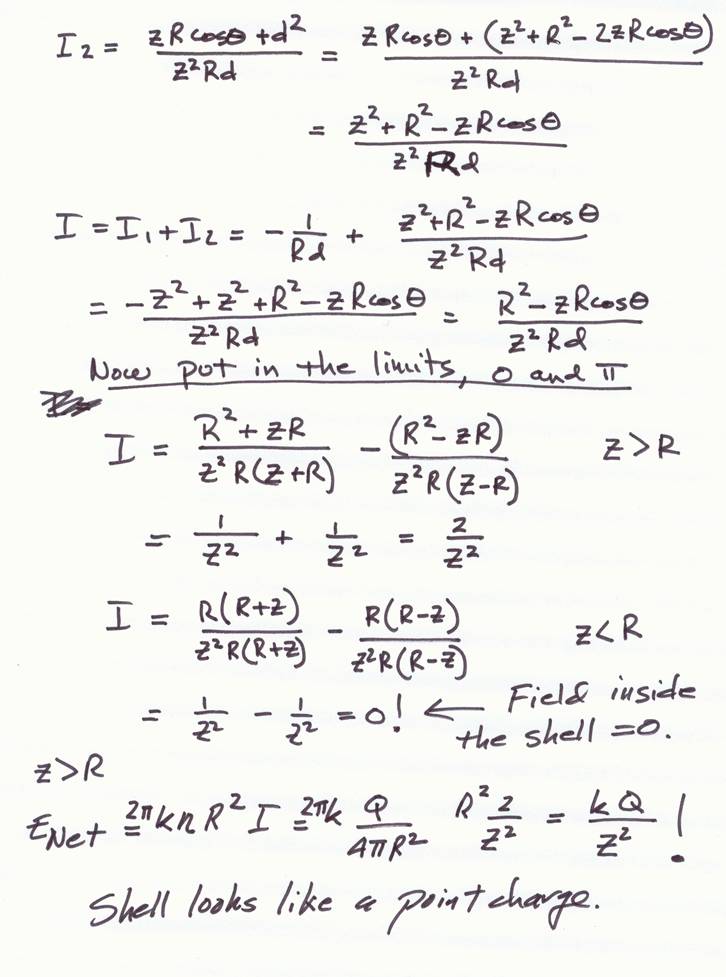 I₂ = (zRcosθ + d²)/(z²Rd) = (zRcosθ + (z² + R² - 2zRcosθ))/(z²Rd)
= (z² + R² - zRcosθ)/(z²Rd)
I = I₁ + I₂ = - 1/(Rd) + (z² + R² - zRcosθ)/(z²Rd)
= (-z² + z² + R² - zRcosθ)/(z²Rd) = (R² - zRcosθ)/(z²Rd)
Now put in the limits, 0 and π
I = (R² + zR)/(z²R(z+R)) - (R² - zR)/(z²R(z-R)) z>R
= 1/z² + 1/z² = 2/z²
I = R(R+z)/(z²R(R+z)) - R(R-z)/(z²R(R-z)) z<R
= 1/z² - 1/z² = 0! ← Field inside
the shell = 0.
z>R
E_Net = 2πkηR²I = 2πk Q/(4πR²) R² 2/z² = kQ/z² !
Shell looks like a point charge.